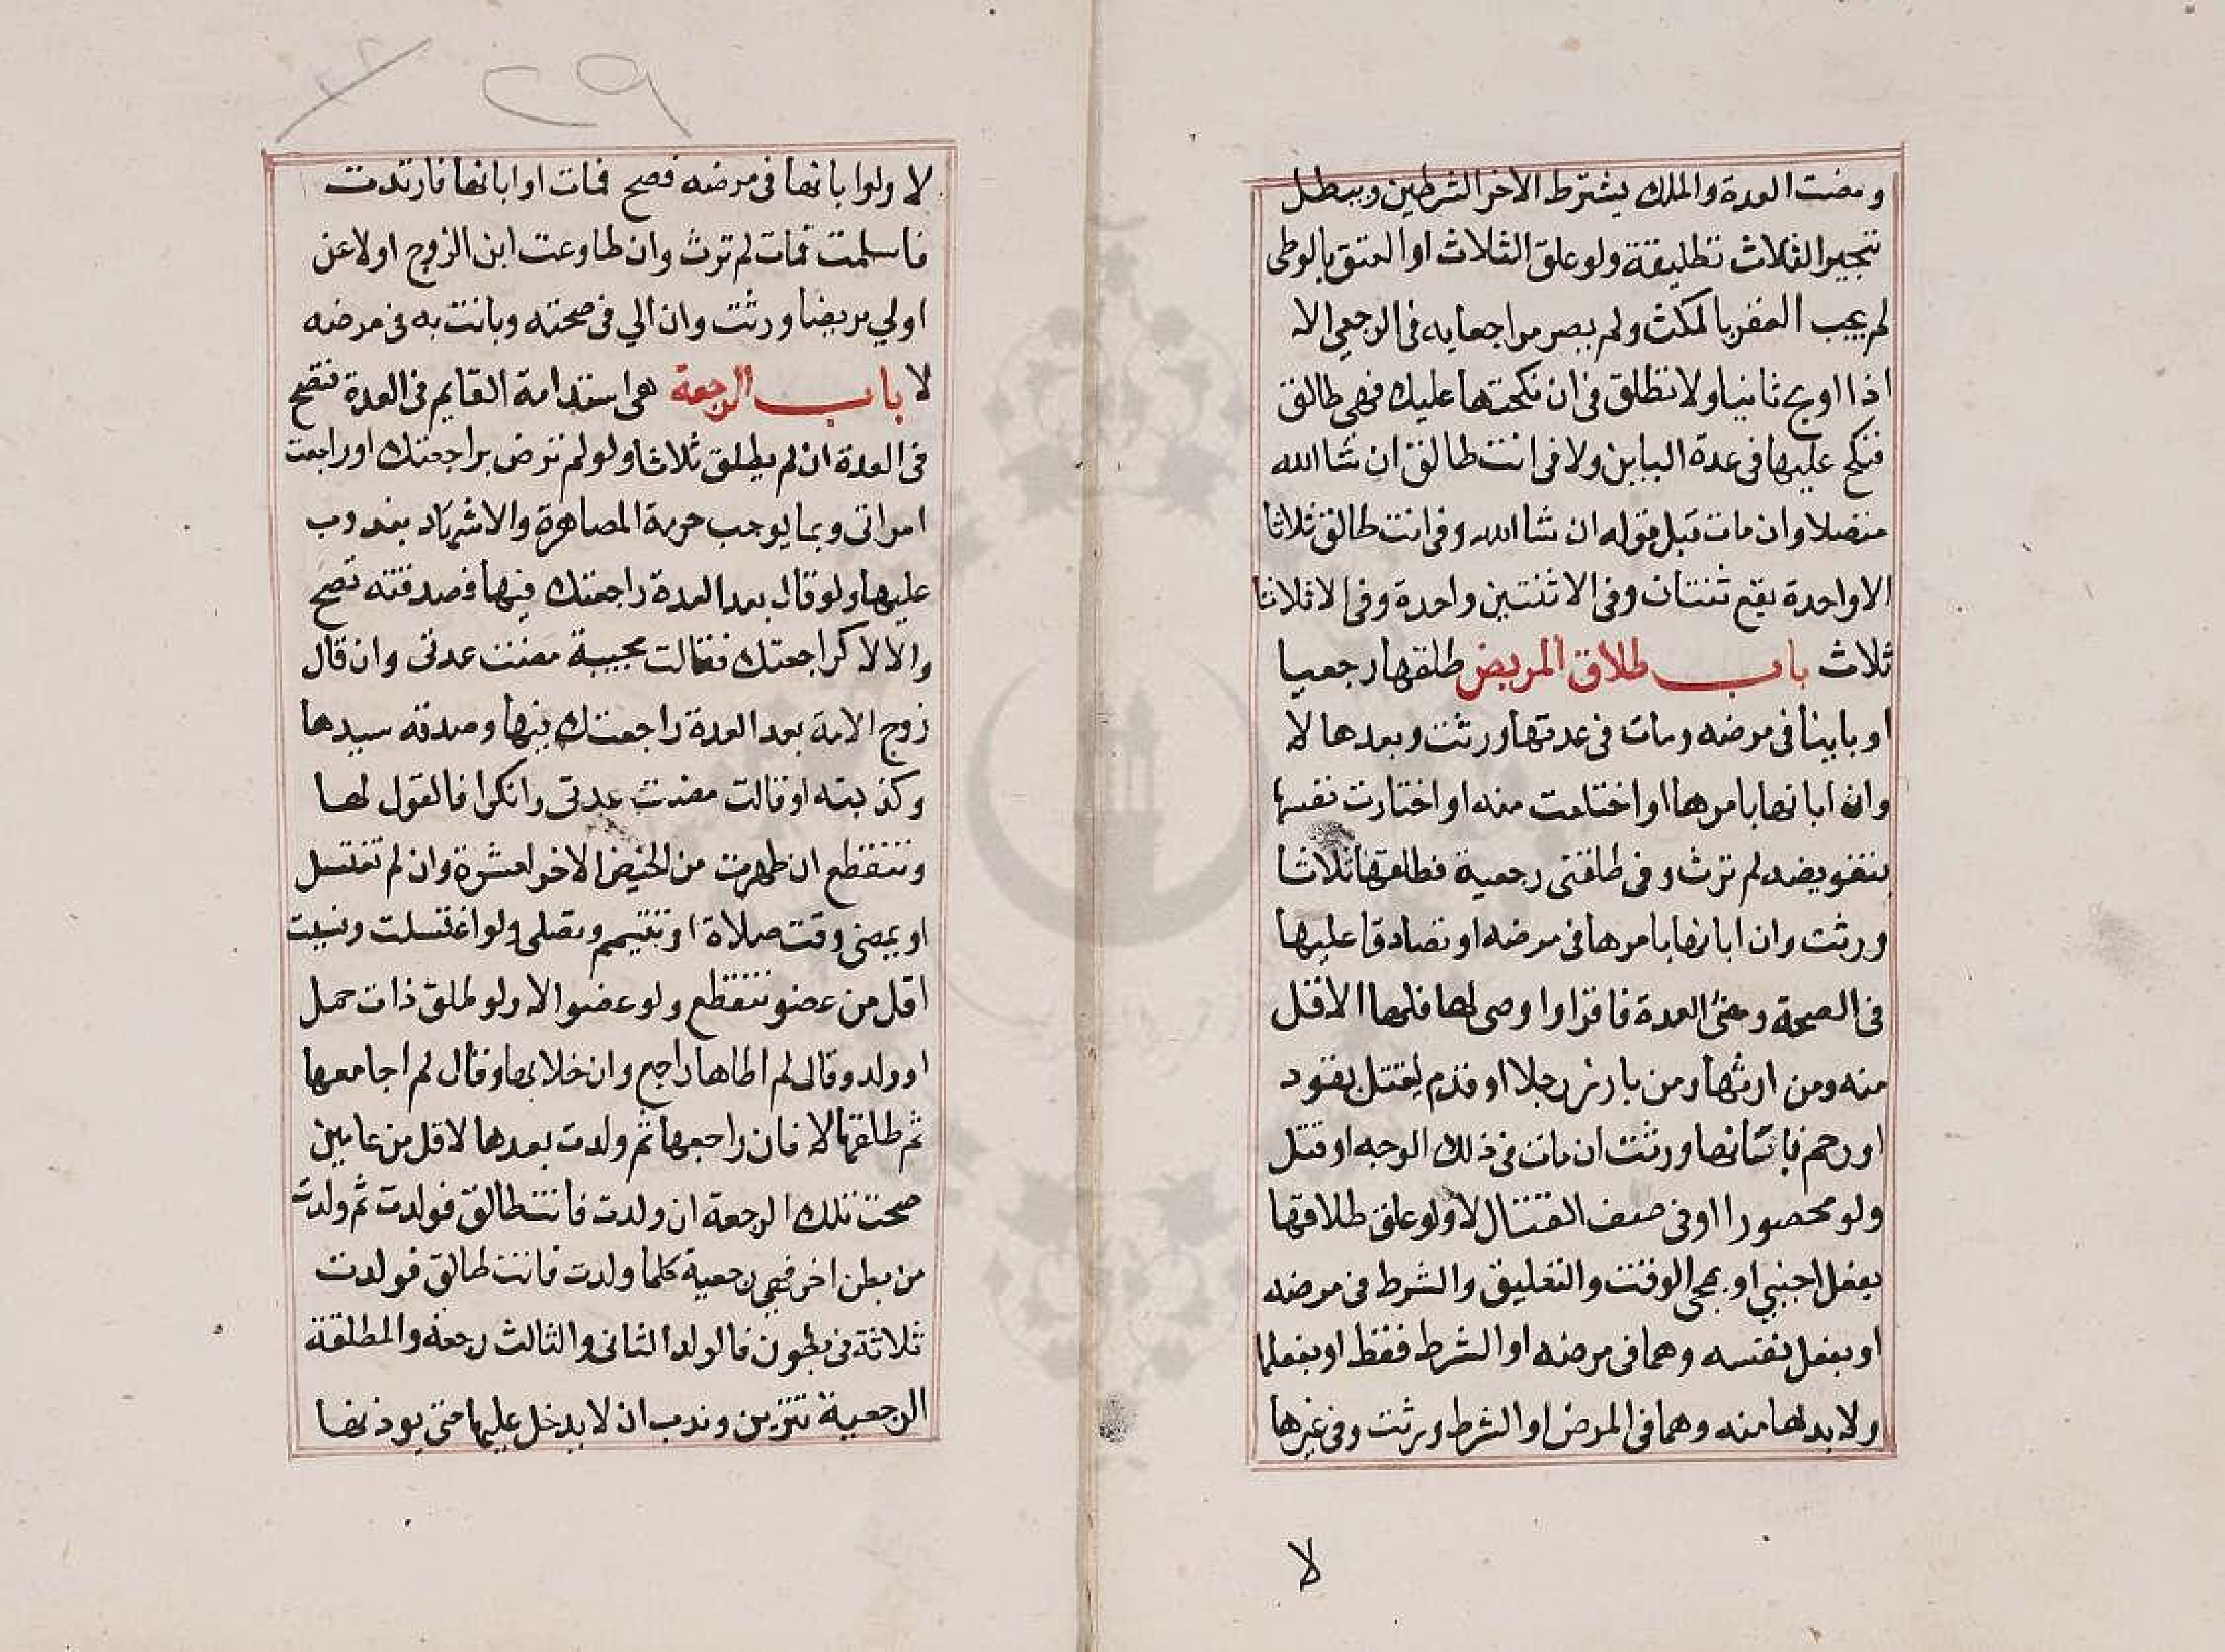 ومضت العدة والملك يشترط الاخر الشرطين ويبطل
تنجيز الثلاث تطليقة ولو علق الثلاث او العتق بالوطى
لم يجب العقر بالمكث ولم يصر مراجعا به فى الرجعي الا
اذا اولج ثانيا ولا تطلق فى ان نكحتها عليك فهي طالق
فنكح عليها فى عدة الباين ولا فى انت طالق ان شا الله
متصلا وان مات قبل قوله ان شا الله وفى انت طالق ثلاثا
الا واحدة يقع ثنتان وفى الا ثنتين واحدة وفى الا ثلاثا
ثلاث باب طلاق المريض طلقها رجعيا
او باينا فى مرضه ومات فى عدتها ورثت وبعدها لا
وان ابانها بامرها او اختلعت منه او اختارت نفسها
بتفويضه لم ترث وفى طلقنى رجعية فطلقها ثلاثا
ورثت وان ابانها بامرها فى مرضه او تصادقا عليها
فى الصحة ومضى العدة فاقر او اوصى لها فلها الاقل
منه ومن ارثها ومن بارز رجلا او قدم ليقتل بقود
او رجم فابانها ورثت ان مات فى ذلك الوجه او قتل
ولو محصورا او فى صف القتال لا ولو علق طلاقها
بفعل اجنبي او بمجى الوقت والتعليق والشرط فى مرضه
او بفعل نفسه وهما فى مرضه او الشرط فقط او بفعلها
ولا بد لها منه وهما فى المرض او الشرط ورثت وفى غيرها
لا
٢٩
لا ولو ابانها فى مرضه فصح فمات او ابانها فارتدت
فاسلمت فمات لم ترث وان طاوعت ابن الزوج او لاعن
او لي مريضا ورثت وان الي فى صحته وبانت به فى مرضه
لا باب الرجعة هى استدامة القايم فى العدة تصح
فى العدة ان لم يطلق ثلاثا ولو لم ترض براجعتك او راجعت
امراتى وبما يوجب حرمة المصاهرة والاشهاد مندوب
عليها ولو قال بعد العدة راجعتك فيها فصدقته تصح
والا لا كراجعتك فقالت مجيبة مضت عدتى وان قال
زوج الامة بعد العدة راجعتك فيها وصدقه سيدها
وكذبته او قالت مضت عدتى وانكرا فالقول لها
وتنقطع ان طهرت من الحيض الاخر لعشرة وان لم تغتسل
او يمضى وقت صلاة او تتيمم وتصلى ولو اغتسلت ونسيت
اقل من عضو تنقطع ولو عضوا لا ولو طلق ذات حمل
او ولد وقال لم اطاها راجع وان خلا بها وقال لم اجامعها
ثم طلقها لا فان راجعها ثم ولدت بعدها لاقل من عامين
صحت تلك الرجعة ان ولدت فانت طالق فولدت ثم ولدت
من بطن اخر فهي رجعية كلما ولدت فانت طالق فولدت
ثلاثة فى بطون فالولد الثانى والثالث رجعة والمطلقة
الرجعية تتزين وندب ان لا يدخل عليها حتى يوذنها